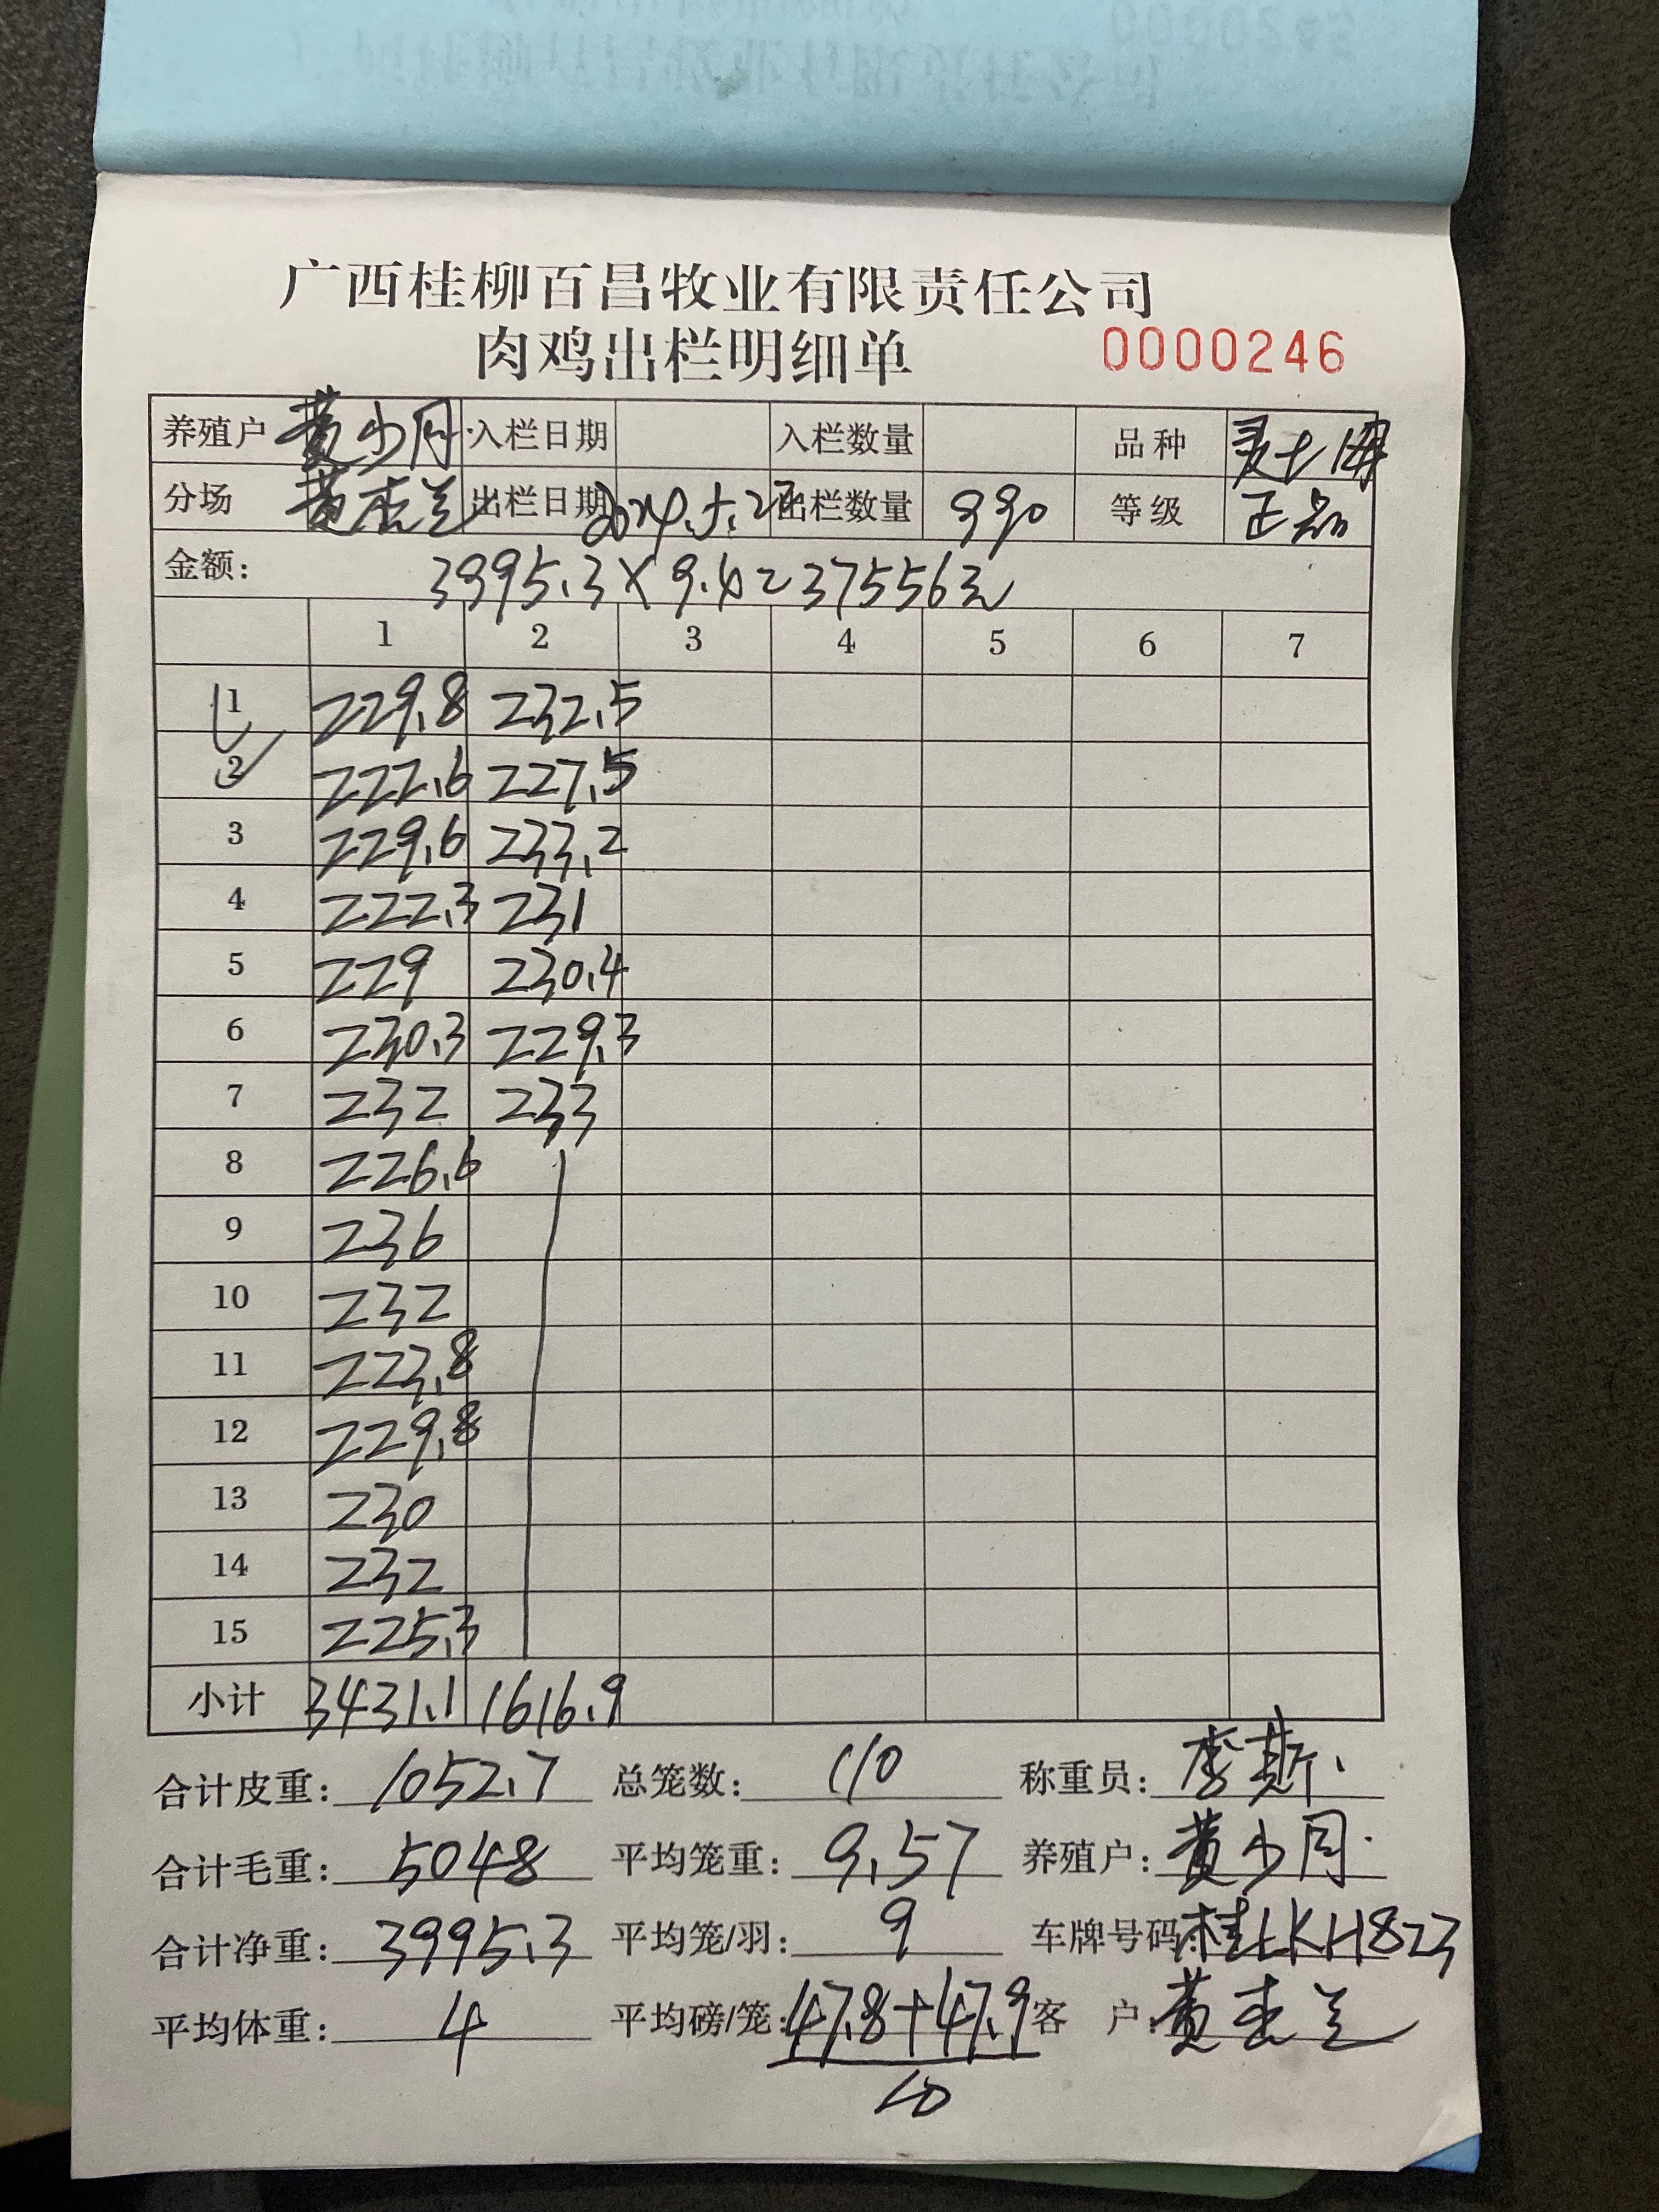 广西桂柳百昌牧业有限责任公司
肉鸡出栏明细单 0000246
养殖户 黄少月 入栏日期 入栏数量 品种
分场 黄杰兰 出栏日期 2024.5.27 出栏数量 990 等级 正品
金额: 3995.3×9.4=37556元
1 2 3 4 5 6 7
1 229.8 232.5
2 222.6 227.5
3 229.6 233.2
4 222.3 231
5 229 230.4
6 230.3 229.3
7 232 233
8 226.6
9 236
10 232
11 223.8
12 229.8
13 230
14 232
15 225.3
小计 3431.1 1616.9
合计皮重: 1052.7 总笼数: 110 称重员: 李斯
合计毛重: 5048 平均笼重: 9.57 养殖户: 黄少月
合计净重: 3995.3 平均笼/羽: 9 车牌号码: 桂LKH823
平均体重: 4 平均磅/笼: 47.8+47.9 客 户: 黄杰兰
10